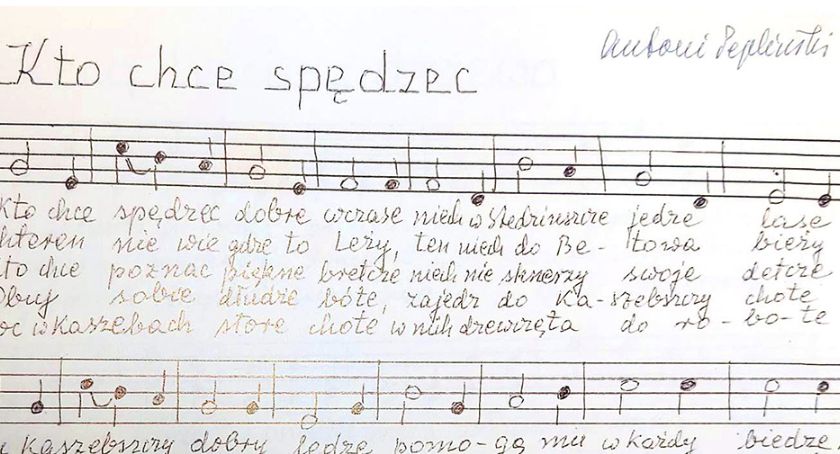 Antoni Pepliński
Kto chce spędzec
Kto chce spędzec dobre wczase niech w Stedzinszcze jedze lase
chteren nie wie gdze to Leży, ten niech do Be - towa bieży
Kto chce poznac piękne bretcze niech nie sknerzy swoje detcze
Obuj sobie dłudze bóte, zajedz do Ka - szebszczy chote
oc w Kaszebach store chote w nich drzewczęta do ro - bo - te
kaszebszczy dobry ledze pomo - gą mu w każdy biedze